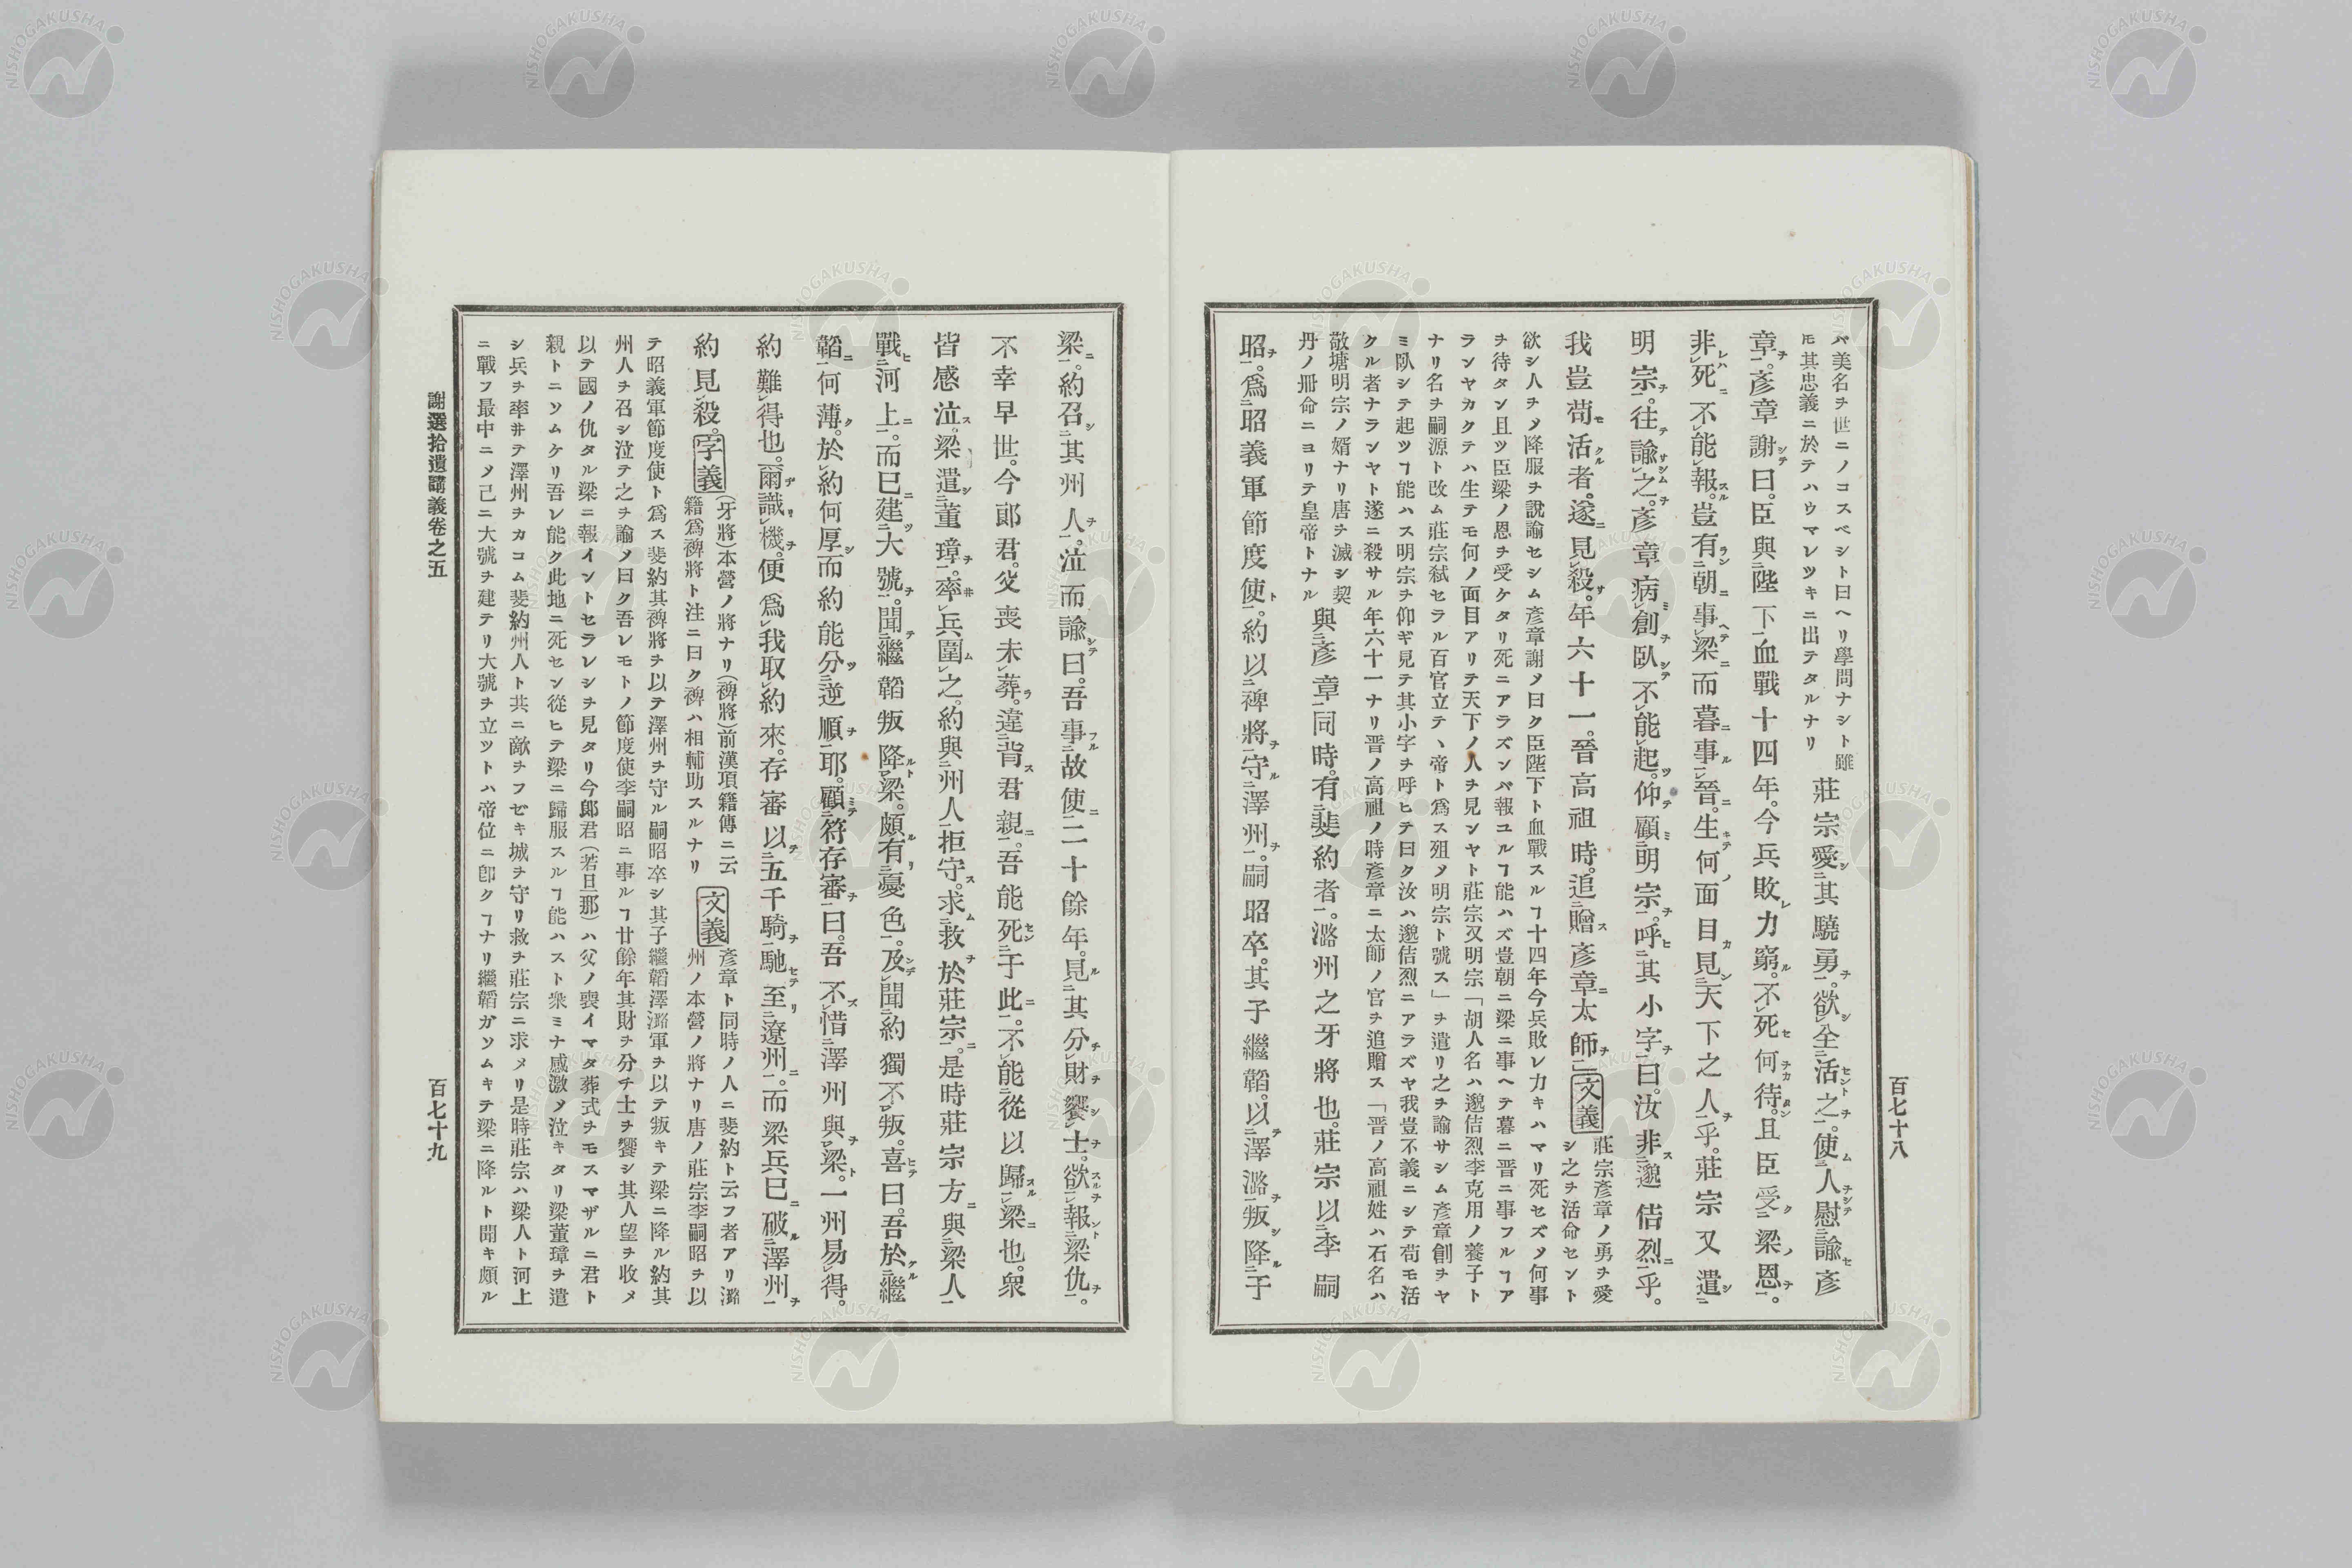 百七十八
ハ美名ヲ世ニノコスベシト曰ヘリ學問ナシト雖
モ其忠義ニ於テハウマレツキニ出テタルナリ
莊宗愛其驍勇。欲全活之。使人慰諭彥
章。彥章謝曰。臣與陛下血戰十四年。今兵敗力窮。不死何待。且臣受梁恩。
非死不能報。豈有朝事梁而暮事晉。生何面目見天下之人乎。莊宗又遣
明宗。往諭之。彥章病創臥不能起。仰顧明宗。呼其小字曰。汝非邈佶烈乎。
我豈苟活者。遂見殺。年六十一。晉高祖時。追贈彥章太師」文義
莊宗彥章ノ勇ヲ愛
シ之ヲ活命セント
欲シ人チヽ降服ヲ說諭セシム彥章謝ノ曰ク臣陛下ト血戰スルヿ十四年今兵敗レ力キハマリ死セズヽ何事
ヲ待タン且ツ臣梁ノ恩ヲ受ケタリ死ニアラズンバ報ユルヿ能ハズ豈朝ニ梁ニ事ヘテ暮ニ晉ニ事フルヿア
ランヤカクテハ生テモ何ノ面目アリテ天下ノ人ヲ見ンヤト莊宗又明宗「胡人名ハ邈佶烈李克用ノ養子ト
ナリ名ヲ嗣源ト改ム莊宗弑セラル百官立テヽ帝ト爲ス殂ノ明宗ト號ス」ヲ遣リ之ヲ諭サシム彥章創ヲヤ
ミ臥シテ起ツヿ能ハス明宗ヲ仰ギ見テ其小字ヲ呼ヒテ曰ク汝ハ邈佶烈ニアラズヤ我豈不義ニシテ苟モ活
クル者ナランヤト遂ニ殺サル年六十一ナリ晋ノ高祖ノ時彥章ニ太師ノ官ヲ追贈ス「晋ノ高祖姓ハ石名ハ
敬塘明宗ノ婿ナリ唐ヲ滅シ契
丹ノ册命ニヨリテ皇帝トナル
與彥章同時。有裴約者。潞州之牙將也。莊宗以李嗣
昭。爲昭義軍節度使。約以裨將守澤州。嗣昭卒。其子繼韜。以澤潞叛降于
梁。約召其州人。泣而諭曰。吾事故使二十餘年。見其分財饗士。欲報梁仇。
不幸早世。今郞君。父喪未葬。違背君親。吾能死于此。不能從以歸梁也。衆
皆感泣。梁遣董璋。率兵圍之。約與州人拒守。求救於莊宗。是時莊宗方與梁人
戰河上。而已建大號。聞繼韜叛降梁。頗有憂色。及聞約獨不叛。喜曰。吾於繼
韜何薄。於約何厚而約能分逆順耶。顧符存審曰。吾不惜澤州與梁。一州易得。
約難得也。爾識機。便爲我取約來。存審以五千騎馳至遼州。而梁兵已破澤州
約見殺。字義
(牙將)本營ノ將ナリ(裨將)前漢項籍傳ニ云
籍爲裨將ト注ニ曰ク裨ハ相輔助スルナリ
文義
彥章ト同時ノ人ニ裴約ト云フ者アリ潞
州ノ本營ノ將ナリ唐ノ莊宗李嗣昭ヲ以
テ昭義軍節度使ト爲ス裴約其裨將ヲ以テ澤州ヲ守ル嗣昭卒シ其子繼韜澤潞軍ヲ以テ叛キテ梁ニ降ル約其
州人ヲ召シ泣テ之ヲ諭ノ曰ク吾レモトノ節度使李嗣昭ニ事ルヿ廿餘年其財ヲ分チ士ヲ饗シ其人望ヲ收メ
以テ國ノ仇タル梁ニ報イントセラレシヲ見タリ今郞君(若旦那)ハ父ノ喪イマタ葬式ヲモスマザルニ君ト
親トニソムケリ吾レ能ク此地ニ死セン從ヒテ梁ニ歸服スルヿ能ハスト衆ミナ感激ノ泣キタリ梁董璋ヲ遣
シ兵ヲ率井テ澤州ヲカコム裴約州人ト共ニ敵ヲフゼキ城ヲ守リ救ヲ莊宗ニ求メリ是時莊宗ハ梁人ト河上
ニ戰フ最中ニノ已ニ大號ヲ建テリ大號ヲ立ツトハ帝位ニ卽クヿナリ繼韜ガソムキテ梁ニ降ルト聞キ頗ル
謝選拾遺講義卷之五
百七十九
NISHOGAKUSHA